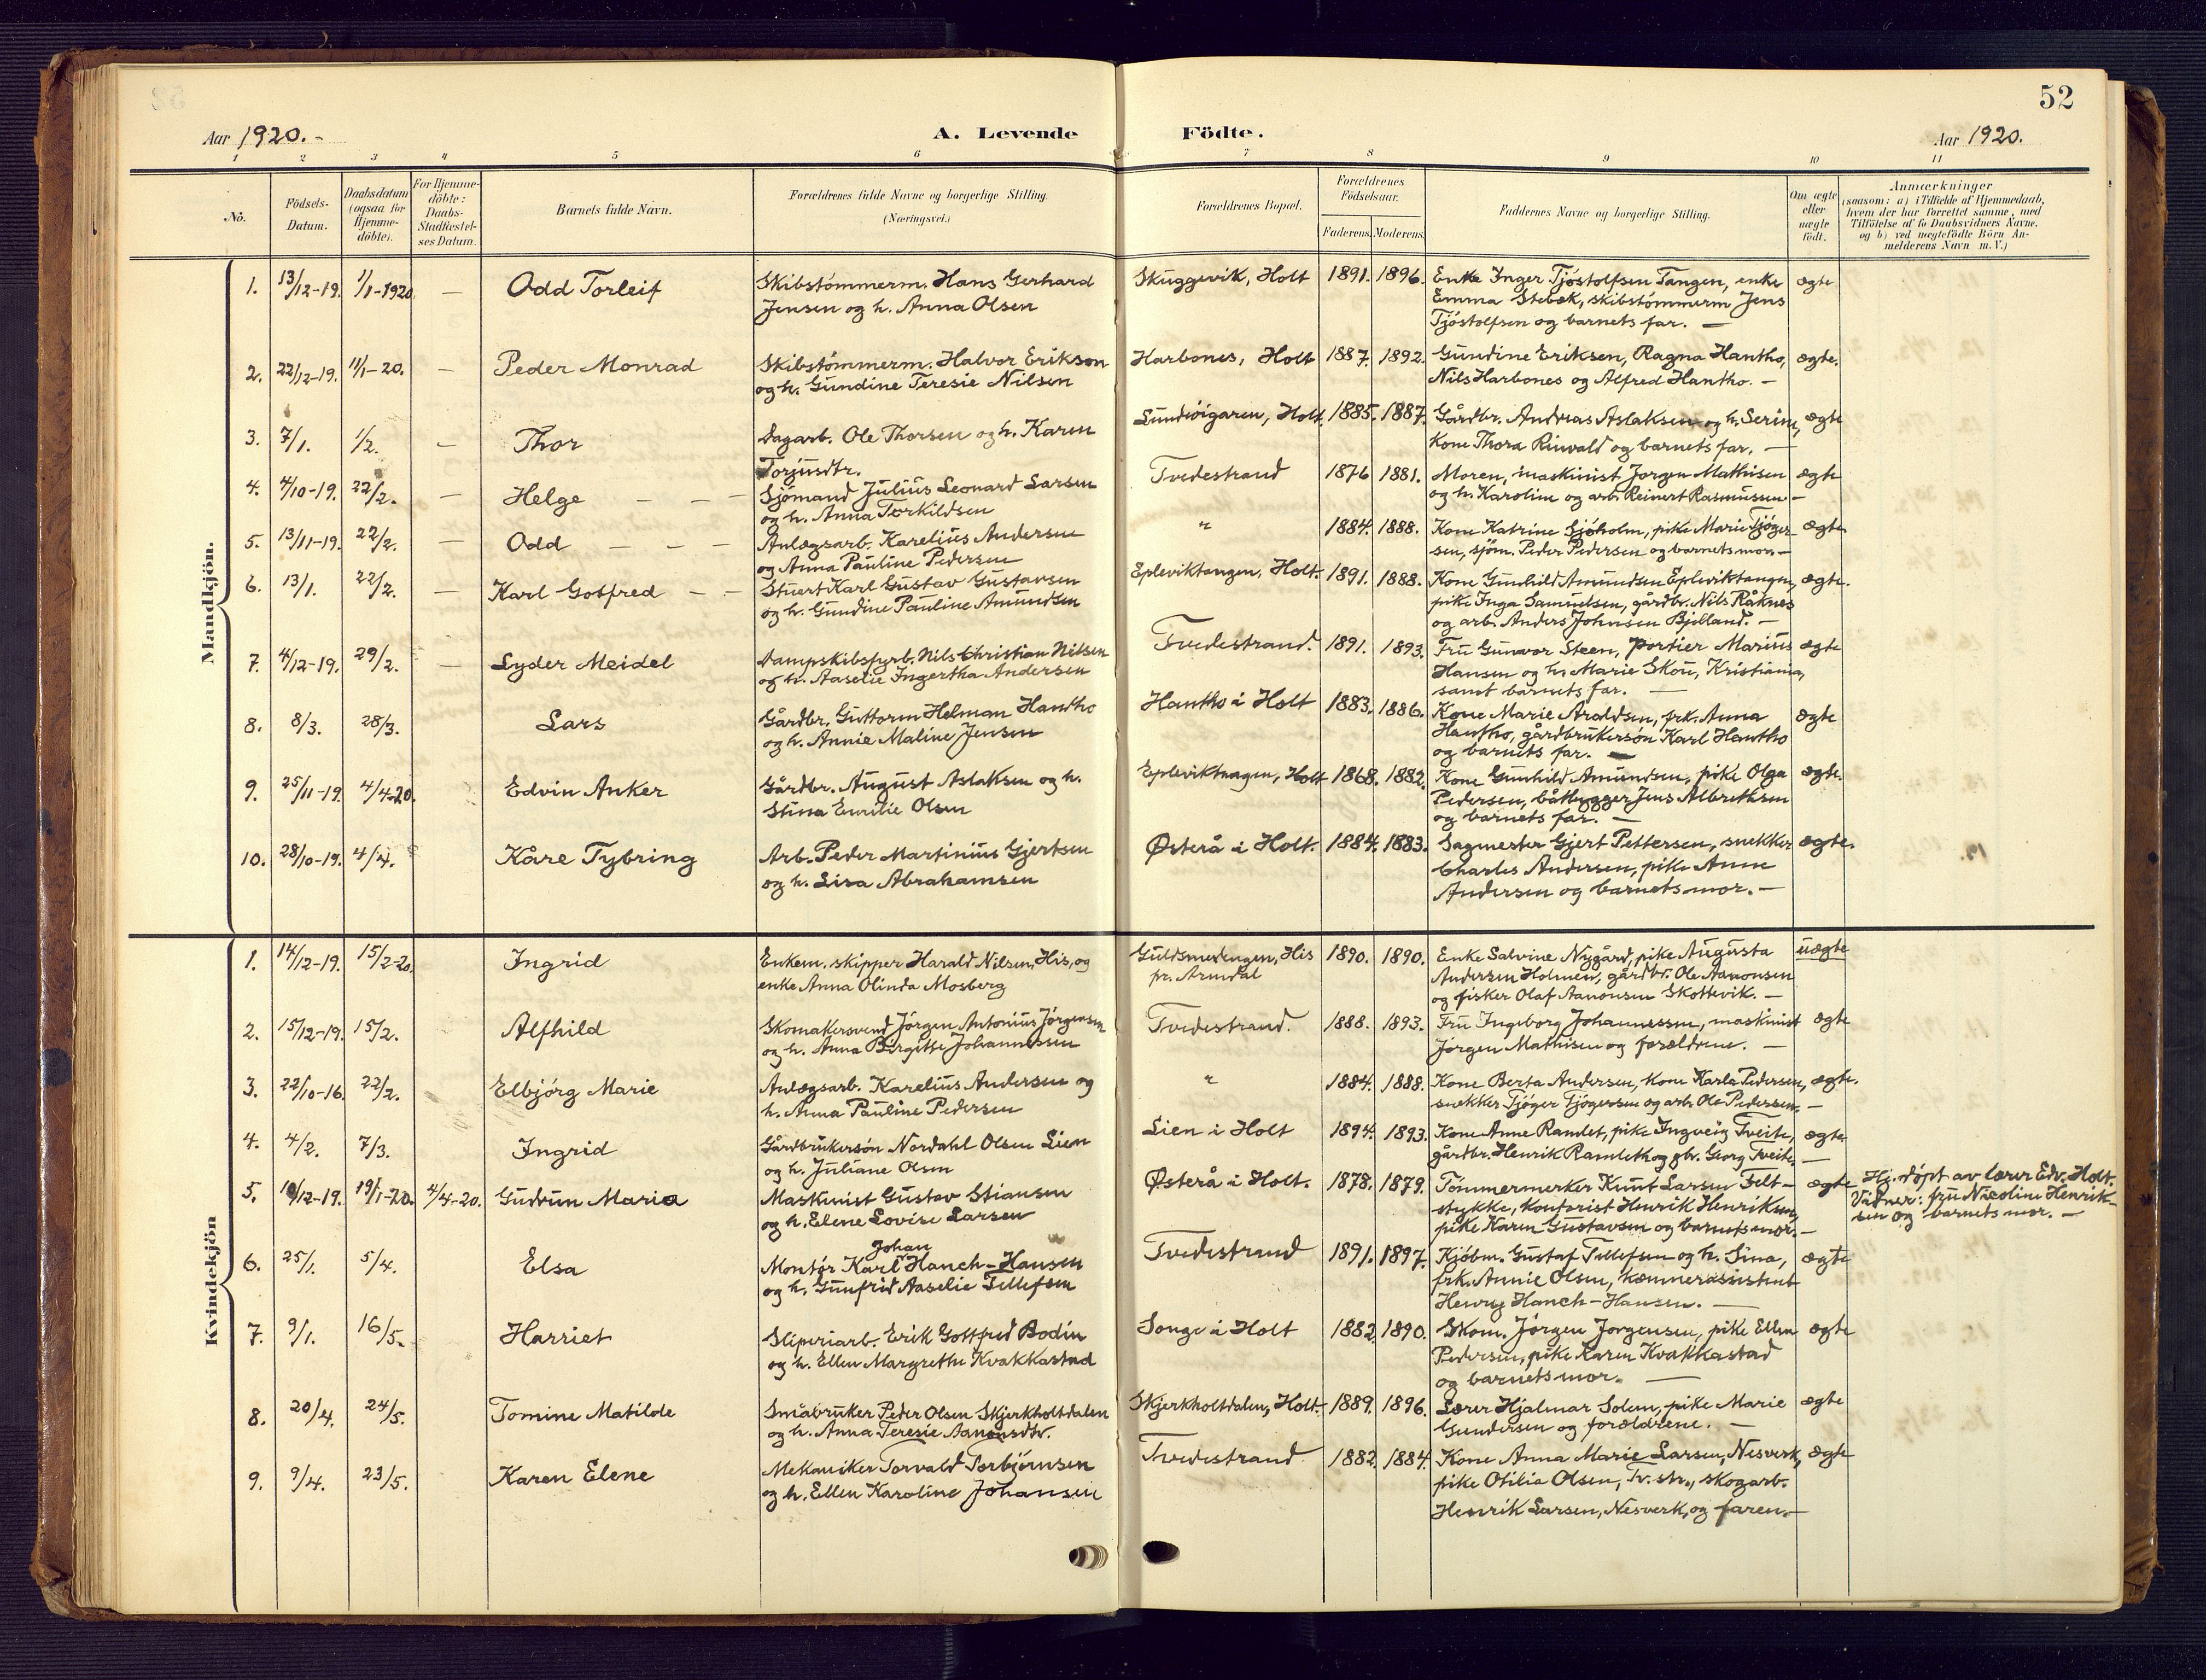 52
Aar 1920.-
A. Levende Födte.
Aar 1920.
1 2 3 4 5 6 7 8 9 10 11
No.
Födsels-
Datum.
Daabsdatum
(ogsaa for
Hjemme-
döbte).
For Hjemme-
döbte:
Daabs-
Stadfæstel-
ses Datum.
Barnets fulde Navn.
Forældrenes fulde Navne og borgerlige Stilling.
(Næringsvei.)
Forældrenes Bopæl.
Forældrenes
Födselsaar.
Faderens. Moderens.
Faddernes Navne og borgerlige Stilling.
Om ægte
eller
uægte
födt.
Anmærkninger
(saasom: a) i Tilfælde af Hjemmedaab,
hvem der har forrettet samme, med
Tilföielse af to Daabsvidners Navne,
og b) ved uægtefödte Börn An-
melderens Navn m. V.)
Mandkjön.
1. 13/12-19. 1/1-1920 — Odd Torleif Skibstömmerm. Hans Gerhard Skuggevik, Holt 1891. 1896. Enke Inger Tjöstolfsen Tangen, enke ægte
Jensen og h. Anna Olsen Emma Stebæk, skibstömmerm Jens
Tjöstolfsen og barnets far. —
2. 22/12-19. 11/1-20. — Peder Monrad Skibstömmerm. Halvor Erikson Harbones, Holt 1887. 1892. Gundine Eriksen, Ragna Hantho, ægte.
og h. Gundine Teresie Nilsen Nils Harbones og Alfred Hantho. —
3. 7/1. 1/2. — Thor Sagarb. Ole Thorsen og h. Karen Holt. 1885. 1887. Gårdbr. Andreas Aslaksen og h. Serine, ægte
Torjusdtr. Kone Thora Rinvald og barnets far. —
4. 4/10-19. 22/2. — Helge — — — Sjömand Julius Leonard Larsen Tvedestrand 1876 1881. Moren, maskinist Jorgen Mathisen ægte
og h. Anna Terkildsen og h. Karoline og arb. Reinert Rasmussen —
5. 13/11-19. 22/2. — Odd — — — Anlægsarb. Karelius Andersen " 1884. 1888. Kone Katrine Sjöholm, pike Marie Tjöger- ægte
og Anna Pauline Pedersen sen, sjöm. Peder Pedersen og barnets mor. —
6. 13/1. 22/2. — Karl Gotfred — — Stuert Karl Gustav Gustavsen Epleviktangen, Holt. 1891. 1888. Kone Gunhild Amundsen Epleviktangen, ægte.
og h. Gundine Pauline Amundsen pike Inga Samuelsen, gårdbr. Nils Råknes
og arb. Anders Johnsen Bjelland. —
7. 4/12-19. 29/2. — Lyder Meidel Dampskibsfyrb. Nils Christian Nilsen Tvedestrand. 1891. 1893. Fru Gunvor Steen, portier Marius ægte
og h. Aaselie Ingertha Andersen Hansen og h. Marie Skou, Kristiania,
samt barnets far. —
8. 8/3. 28/3. Lars Gårdbr. Guttorm Helman Hantho Hantho i Holt 1883. 1886. Kone Marie Araldsen, frk. Anna ægte
og h. Annie Maline Jensen Hantho, gårdbrukersön Karl Hantho
og barnets far. —
9. 25/11-19 4/4-20. Edvin Anker Gårdbr. August Aslaksen og h. Epleviktangen, Holt 1868. 1882. Kone Gunhild Amundsen, pike Olga ægte
Stina Emilie Olsen Pedersen, båtbygger Jens Albrethsen
og barnets far. —
10. 28/10-19. 4/4. Kåre Tybring Arb. Peder Martinius Gjertsen Østerå i Holt. 1884. 1883. Sagmester Gjert Pettersen, snekker ægte.
og h. Lisa Abrahamsen Charles Andersen, pike Anne
Andersen og barnets mor. —
Kvindekjön
1. 14/12-19. 15/2-20. Ingrid Enkem. skipper Harald Nilsen, His, og Guldsmedengen, His 1890. 1890. Enke Salvine Nygård, pike Augusta uægte
enke Anna Olinda Mosberg pr. Arendal Andersen Holmen, gårdbr. Ole Aanonsen
og fisker Olaf Aanonsen Skottevik. —
2. 15/12-19. 15/2. Alfhild Skomakersvend Jörgen Antonius Jörgensen Tvedestrand. 1888. 1893. Fru Ingeborg Johannessen, maskinist ægte
og h. Anna Birgitte Johannessen Jörgen Mathisen og forældrene. —
3. 22/10-16. 22/2. Elbjörg Marie Anlægsarb. Karelius Andersen og " 1884. 1888. Kone Berta Andersen, kone Karla Pedersen, ægte.
h. Anna Pauline Pedersen snekker Tjöger Tjögersen og arb. Ole Pedersen. —
4. 4/2. 7/3. Ingrid Gårdbrukersön Nordahl Olsen Lien Lien i Holt 1894. 1893. Kone Anne Ramlet, pike Ingveig Tveite, ægte
og h. Juliane Olsen gårdbr. Henrik Ramleth og gbr. Georg Tveite. —
5. 10/12-19. 19/1-20. 4/4-20. Gudrun Maria Maskinist Gustav Stiansen Østerå i Holt. 1878. 1879. Tömmermerker Knut Larsen Felt- ægte Hj. döpt av lærer Edv. Holt.
og h. Elene Lovise Larsen stykke, kontorist Henrik Henriksen, Vidner: fru Nicoline Henrik-
pike Karen Gustavsen og barnets mor. — sen og barnets mor. —
6. 25/1. 5/4. Elsa Montør Karl Johan Hanch-Hansen Tvedestrand 1891. 1897. Kjöbm. Gustaf Tellefsen og h. Sina, ægte
og h. Gunfrid Aaselie Tellefsen frk. Annie Olsen, kæmnerassistent
Henry Hanch-Hansen. —
7. 9/1. 16/5. Harriet Sliperiarb. Erik Gottfred Bodin Songe i Holt 1882. 1890. Skom. Jörgen Jorgensen, pike Ellen ægte
og h. Ellen Margrethe Kvakkastad Pedersen, pike Karen Kvakkastad
og barnets mor. —
8. 20/4. 24/5. Tomine Matilde Småbruker Peder Olsen Skjerkholtdalen Skjerkholtdalen, Holt. 1889. 1896. Lærer Hjalmar Solem, pike Marie ægte
og h. Anna Teresie Aanonsdtr. Gundersen og forældrene. —
9. 9/4. 23/5. Karen Elene Mekaniker Torvald Torbjörnsen Tvedestrand 1882. 1884. Kone Anna Marie Larsen, Nesverk, ægte
og h. Ellen Karoline Johansen pike Otilia Olsen, Tv. str., skogarb.
Henrik Larsen, Nesverk, og faren. —